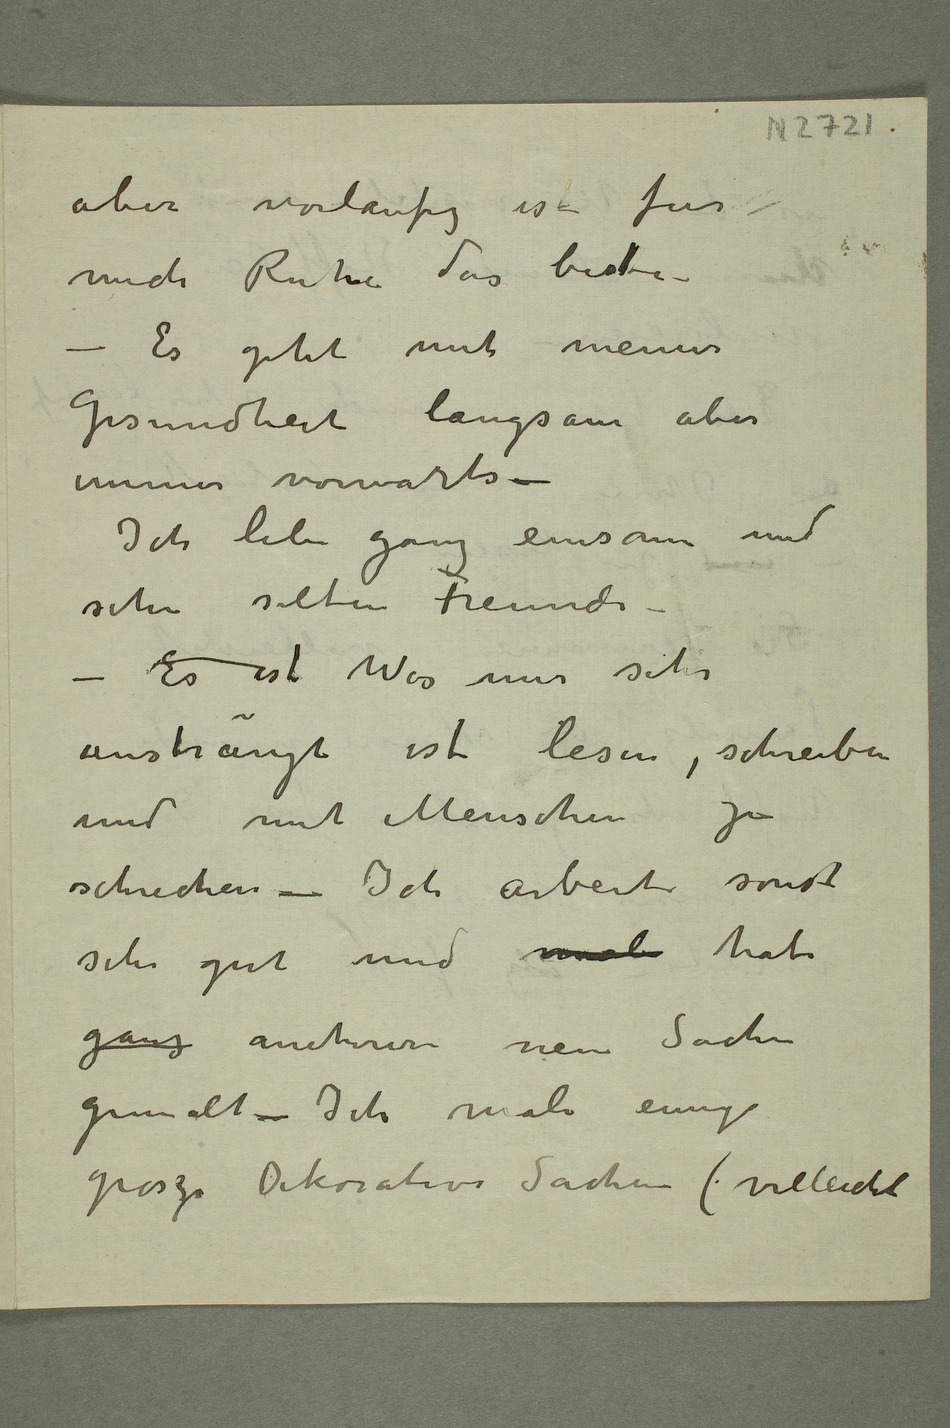 N 2721.
aber vorlaüfig ist für
mich Ruhe das beste –
– Es geht mit meiner
Gesundheit langsam aber
immer vorwarts –
Ich lebe ganz einsam und
sehe selten Freunde –
– Es ist Was mir sehr
ansträngt ist lesen, schreiben
und mit Menschen zu
schrechen – Ich arbeite sonst
sehr gut und male habe
ganz mehrere neue Sachen
gemalt – Ich male einige
grosze Dekorative Sachen (villeicht